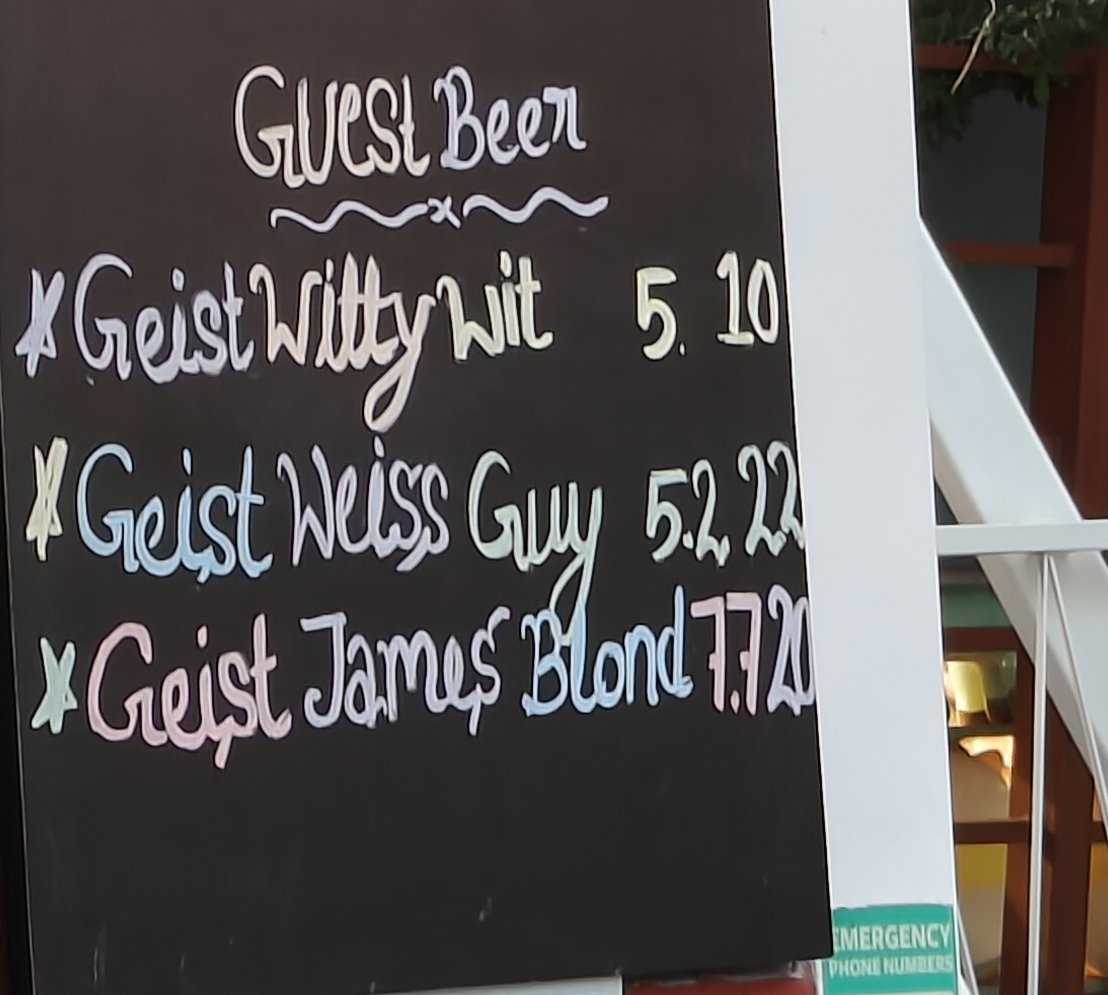 Guest Beer
* Geist Witty Wit 5. 10
* Geist Weiss Guy 5.2 22
* Geist James Blond 7.7 20
EMERGENCY
PHONE NUMBERS